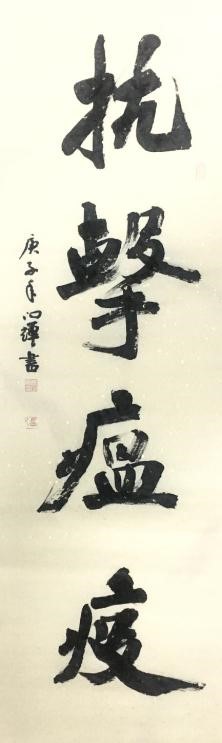 抗擊瘟疫
庚子年心輝書